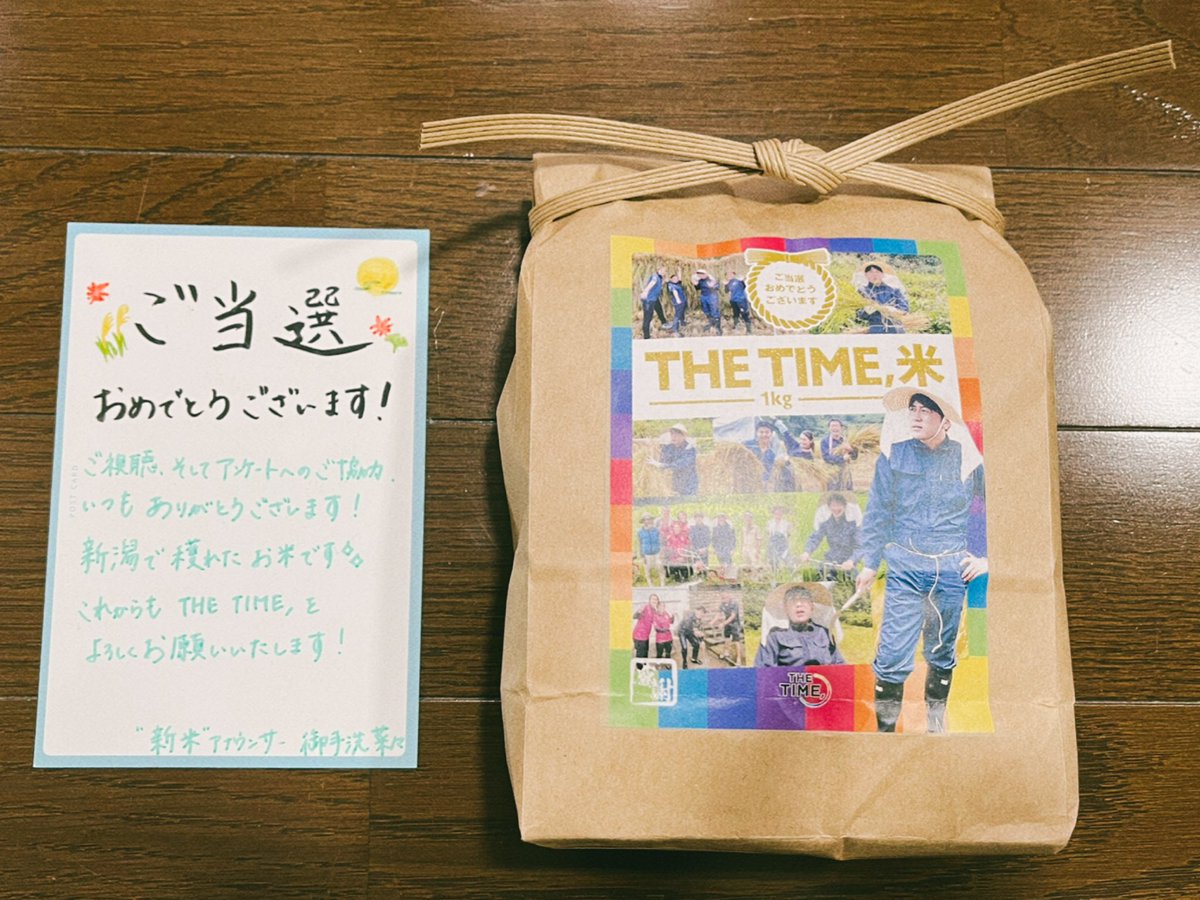 ご当選
おめでとうございます!
ご視聴、そしてアンケートへのご協力、
いつも ありがとうございます!
新潟で穫れた お米です
これからも THE TIME, を
よろしくお願いいたします!
"新米"アナウンサー 御手洗菜々
POST CARD
ご当選
おめでとう
ございます
THE TIME,米
1kg
THE
TIME,